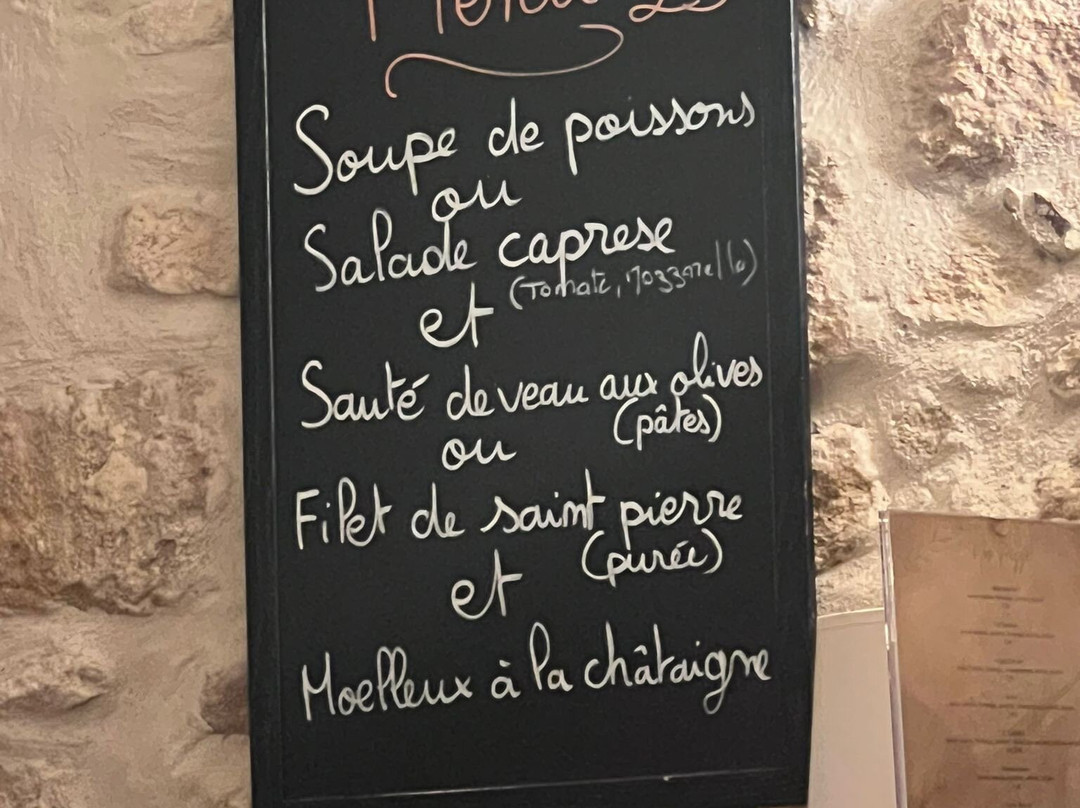 Soupe de poissons
ou
Salade caprese
(Tomate, Mozzarella)
et
Sauté de veau aux olives
(pâtes)
ou
Filet de saint pierre
(purée)
et
Moelleux à la châtaigne